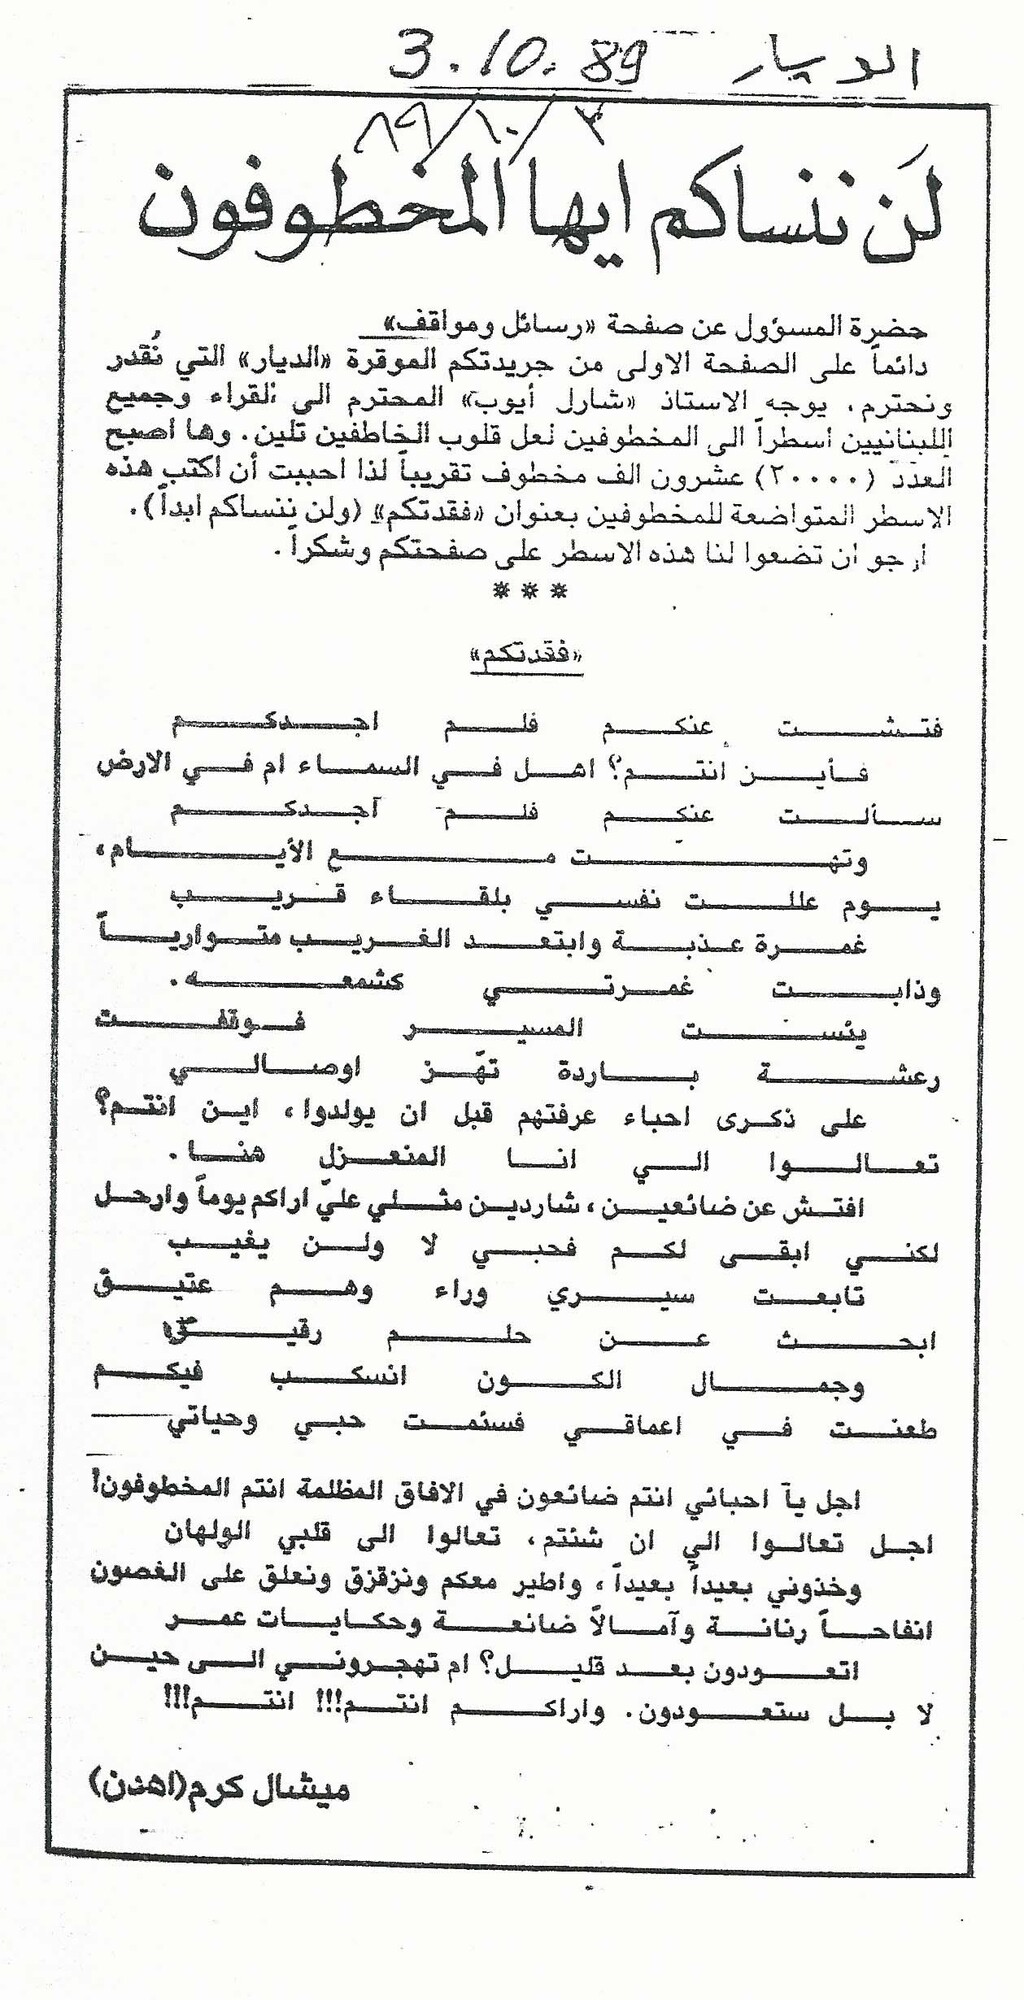 الديار 3.10.89
٨٩/١٠/٣
لَن ننساكم ايها المخطوفون
حضرة المسؤول عن صفحة «رسائل ومواقف»
دائماً على الصفحة الاولى من جريدتكم الموقرة «الديار» التي نُقدر
ونحترم، يوجه الاستاذ «شارل أيوب» المحترم الى القراء وجميع
اللبنانيين اسطراً الى المخطوفين لعل قلوب الخاطفين تلين. وها اصبح
العدد (٢٠٠٠٠) عشرون الف مخطوف تقريباً لذا احببت أن اكتب هذه
الاسطر المتواضعة للمخطوفين بعنوان «فقدتكم» (ولن ننساكم ابداً).
ارجو ان تضعوا لنا هذه الاسطر على صفحتكم وشكراً.
***
«فقدتكم»
فتشت عنكم فلم اجدكم
فأين انتم؟ اهل في السماء ام في الارض
سألت عنكم فلم اجدكم
وتهت مع الأيام،
يوم عللت نفسي بلقاء قريب
غمرة عذبة وابتعد الغريب متوارياً
وذابت غمرتي كشمعه.
يئست المسير فوقفت
رعشة باردة تهّز اوصالي
على ذكرى احباء عرفتهم قبل ان يولدوا، اين انتم؟
تعالوا الي انا المنعزل هنا.
افتش عن ضائعين، شاردين مثلي عليّ اراكم يوماً وارحل
لكني ابقى لكم فحبي لا ولن يغيب
تابعت سيري وراء وهم عتيق
ابحث عن حلم رقيق
وجمال الكون انسكب فيكم
طعنت في اعماقي فسئمت حبي وحياتي
اجل يا احبائي انتم ضائعون في الافاق المظلمة انتم المخطوفون!
اجل تعالوا الي ان شئتم، تعالوا الى قلبي الولهان
وخذوني بعيداً بعيداً، واطير معكم ونزقزق ونعلق على الغصون
انفاحاً رنانة وآمالاً ضائعة وحكايات عمر
اتعودون بعد قليل؟ ام تهجروني الى حين
لا بل ستعودون. واراكم انتم!!! انتم!!!
ميشال كرم(اهدن)